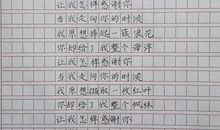 让我怎样感谢你
当我走向你的时候
我原想捧起一簇浪花
你却给了我整个海洋
让我怎样感谢你
当我走向你的时候
我原想撷取一枚红叶
你却给了我整个枫林
让我怎样感谢你